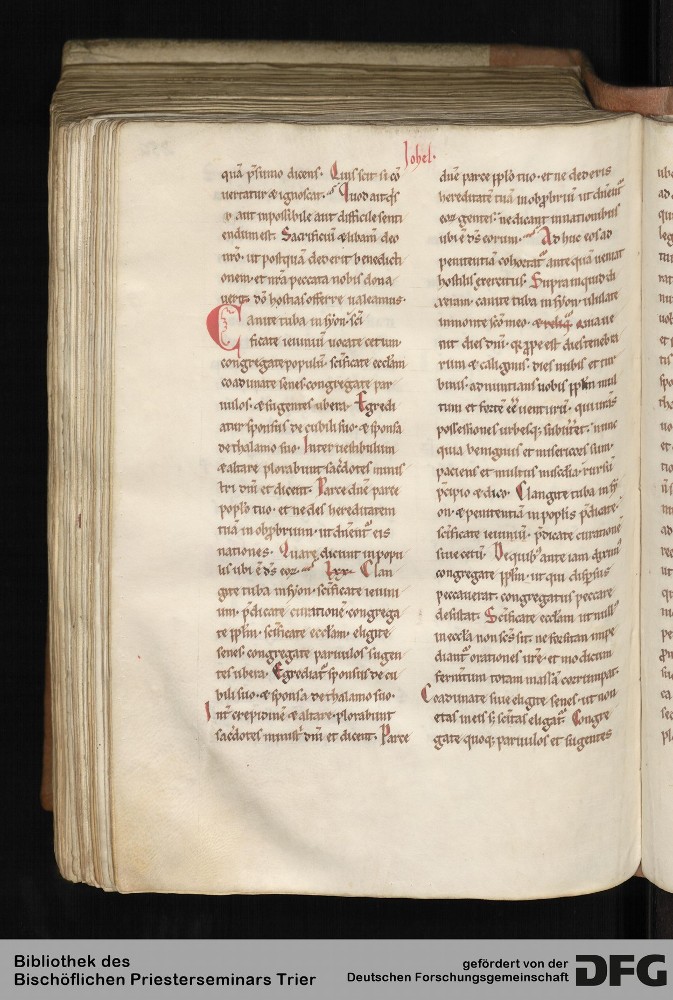 Iohel.
quā p̄sumo dicens. Quis scit si cō
uertatur & ignoscat. Quod aut q̄si
r aut inpossibile aut difficile senti
endum est. Sacrificiū & libam̄ deo
nr̄o. ut postquā dederit benedicti
onem. et nr̄a peccata nobis dona
uerit. dō hostias offerre ualeamus.
Canite tuba in syon. sc̄i
ficate ieiuniū uocate cetum
congregate populū. sc̄ificate eccłam
coadunate senes congregate par
uulos. & sugentes ubera. Egredi
atur sponsus de cubili suo. & sponsa
de thalamo suo. Inter uestibulum
& altare plorabunt sac̄dotes minis
tri dn̄i et dicent. Parce dn̄e parce
poplo tuo. et ne des hereditatem
tuā in obp̄brium. ut dn̄ent̄ eis
nationes. Quare dicunt in popu
lis ubi ē d̄s eoꝝ. lxx. Clan
gite tuba in syon. sc̄ificate ieiuni
um. p̄dicate curationē. congrega
te pp̄lm. sc̄ificate eccłam. eligite
senes. congregate paruulos sugen
tes ubera. Egrediat̄ sponsus de cu
bili suo. & sponsa de thalamo suo.
Int̄ crepidinē & altare. plorabunt
sac̄dotes minist̄ dn̄i et dicent. Parce
dn̄e parce pp̄lo tuo. et ne dederis
hereditatē tuā in obp̄briū ut dn̄ent̄
eoꝝ gentes. ne dicant in nationibus
ubi ē d̄s eorum. Ad huc eos ad
penitentiā cohortat̄ antequā ueniat
hostilis exercitus. Supra inquid di
xeram. canite tuba in syon. ululate
in monte sc̄o meo. & reliq̄ quia ue
nit dies dn̄i. q̄ p̄pe est dies tenebra
rum & caliginis. dies nubis et tur
binis. adnuntians uobis pp̄lm mul
tum et fortē ēē uenturū. qui ur̄as
possessiones urbesq; subūtet. nunc
quia benignus et misericors sum.
paciens et multus mis̄cdia. rursū
p̄cipio & dico. Clangite tuba in sy
on. & penitentiā in poplis p̄dicate.
sc̄ificate ieiuniū. p̄dicate curationē
siue cetū. De quib; ante iam diximꝰ
congregate pp̄lm. ut qui disp̄sus
peccauerat. congregatus peccare
desistat. Sc̄ificate eccłam ut null
in eccła non sc̄s sit. ne forsitan impe
diant̄ orationes ur̄e. et modicum
fermtum totam massā corrumpat.
Coadunate siue eligite senes. ut non
etas in eis s; sc̄itas eligat̄. Congre
gate quoq; paruulos et sugentes
Bibliothek des
Bischöflichen Priesterseminars Trier
gefördert von der
Deutschen Forschungsgemeinschaft
DFG